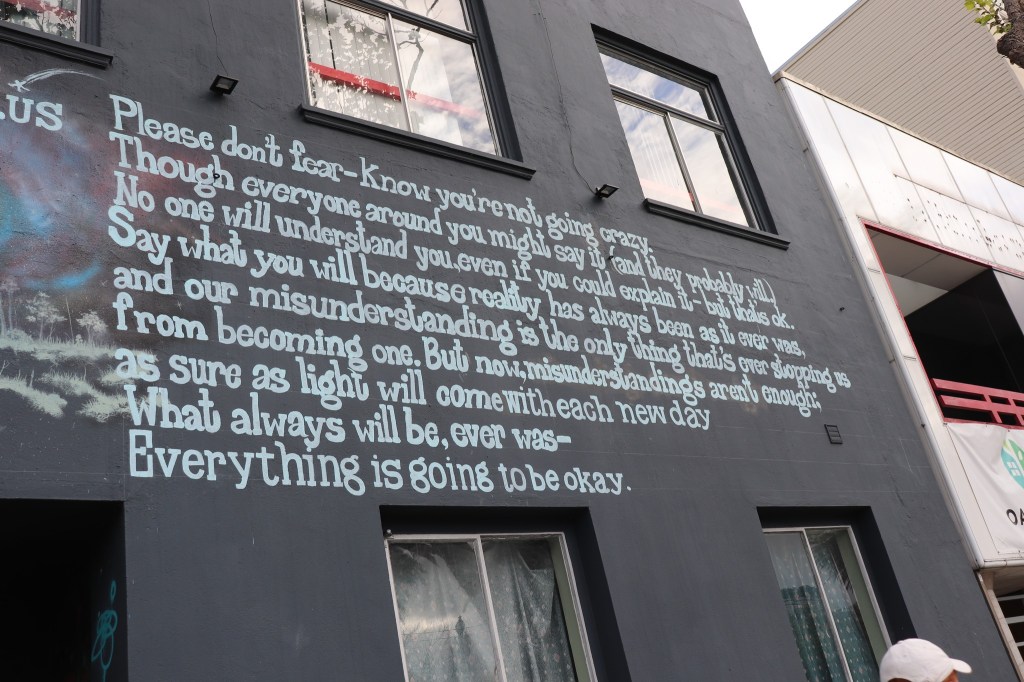 .US
Please don't fear-Know you're not going crazy.
Though everyone around you might say it (and they probably will)
No one will understand you, even if you could explain it- but that's ok.
Say what you will because reality has always been as it ever was,
and our misunderstanding is the only thing that's ever stopping us
from becoming one. But now, misunderstandings aren't enough;
as sure as light will come with each new day
What always will be, ever was-
Everything is going to be okay.
OA